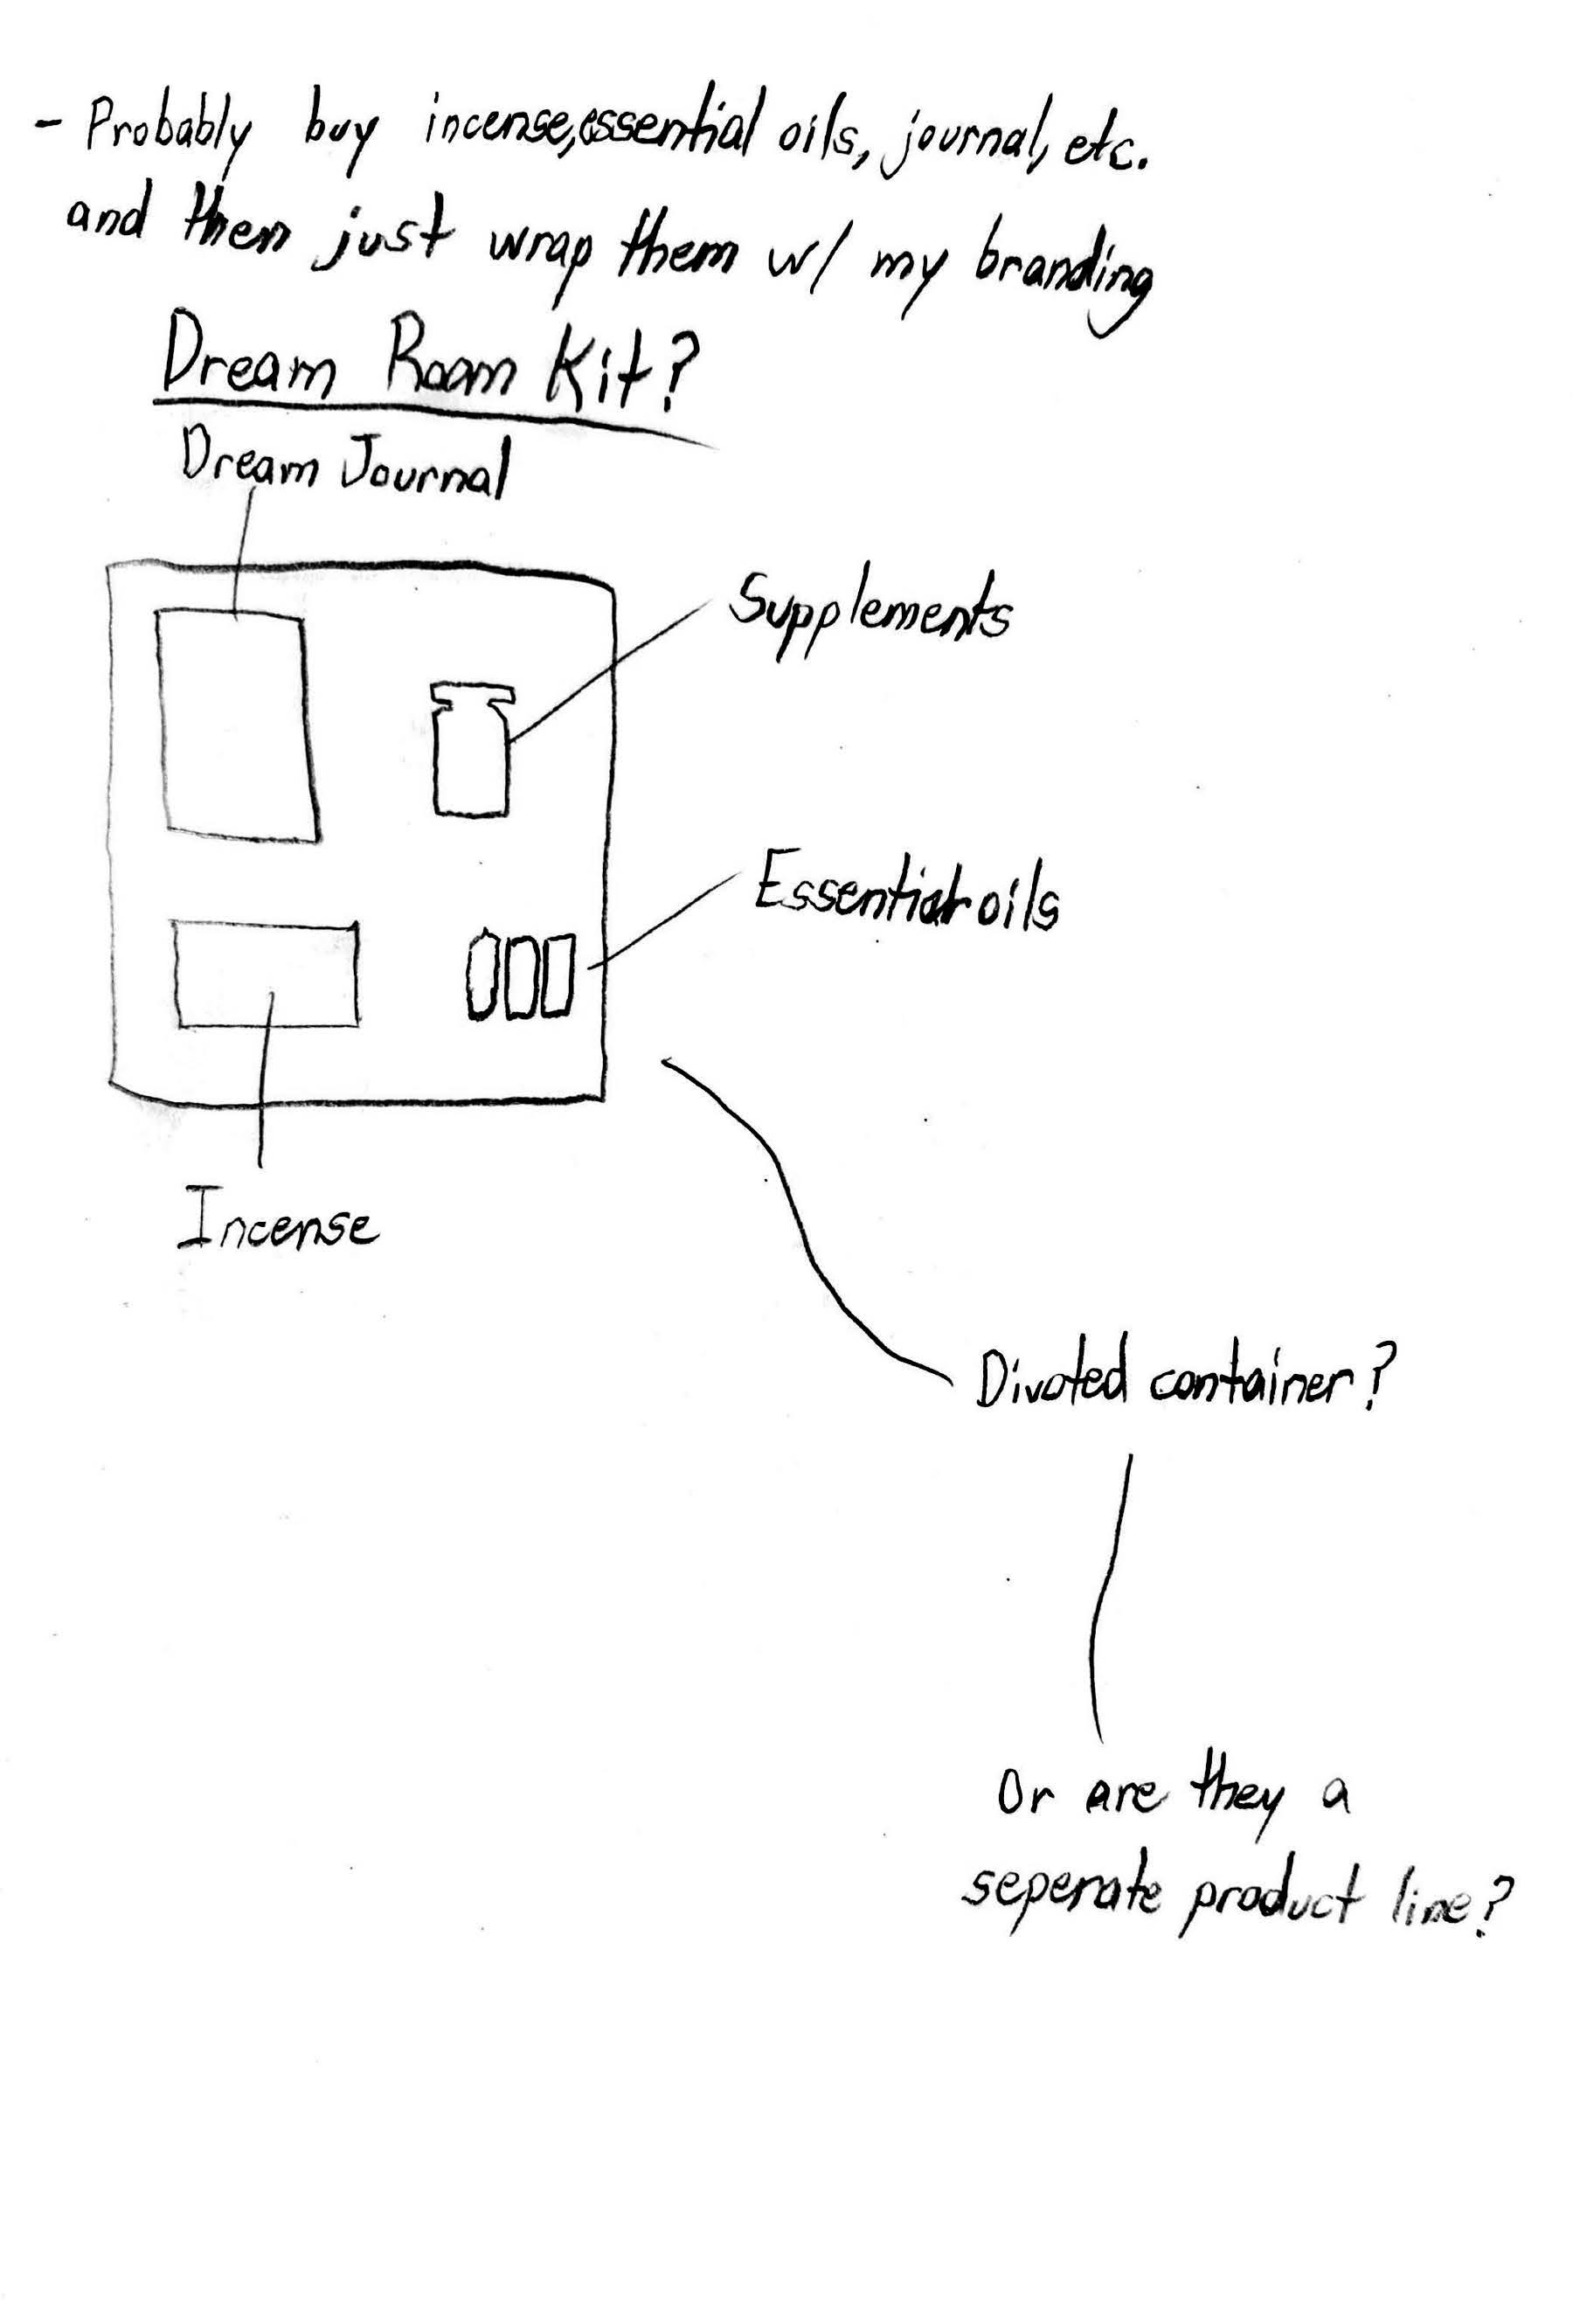 - Probably buy incense, essential oils, journal, etc.
and then just wrap them w/ my branding
Dream Room Kit?
Dream Journal
Supplements
Essential oils
Incense
Divoted container?
Or are they a
seperate product line?